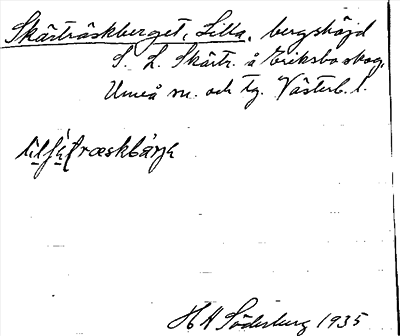 Skärträskberget, Lilla, bergshöjd
S. L. Skärtr. å Eriksbo skog,
Umeå sn. och tg. Västerb. l.
træskbárjɛ
H A Söderburg 1935